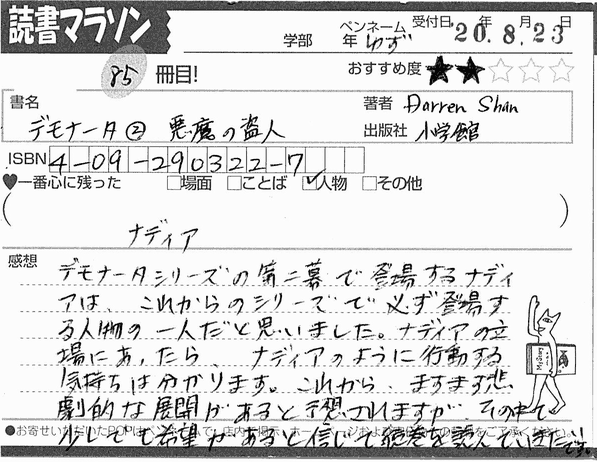 読書マラソン
学部 年 ペンネーム ゆず 受付日 '20年.8月.23日
85 冊目! おすすめ度 ★★☆☆☆
書名 著者 Darren Shan
デモナータ② 悪魔の盗人 出版社 小学館
ISBN 4-09-290322-7
♥一番心に残った □場面 □ことば ☑人物 □その他
( ナディア )
感想
デモナータシリーズの第二幕で登場するナディ
アは、これからのシリーズで必ず登場す
る人物の一人だと思いました。ナディアの立
場にあったら、ナディアのように行動する
気持ちは分かります。これから、ますます悲
劇的な展開があると予想されますが、その中で
少しでも希望があると信じて後巻を読んでいきたいです。
●お寄せいただいたPOPはペンネームで、店内掲示・ホームページおよび